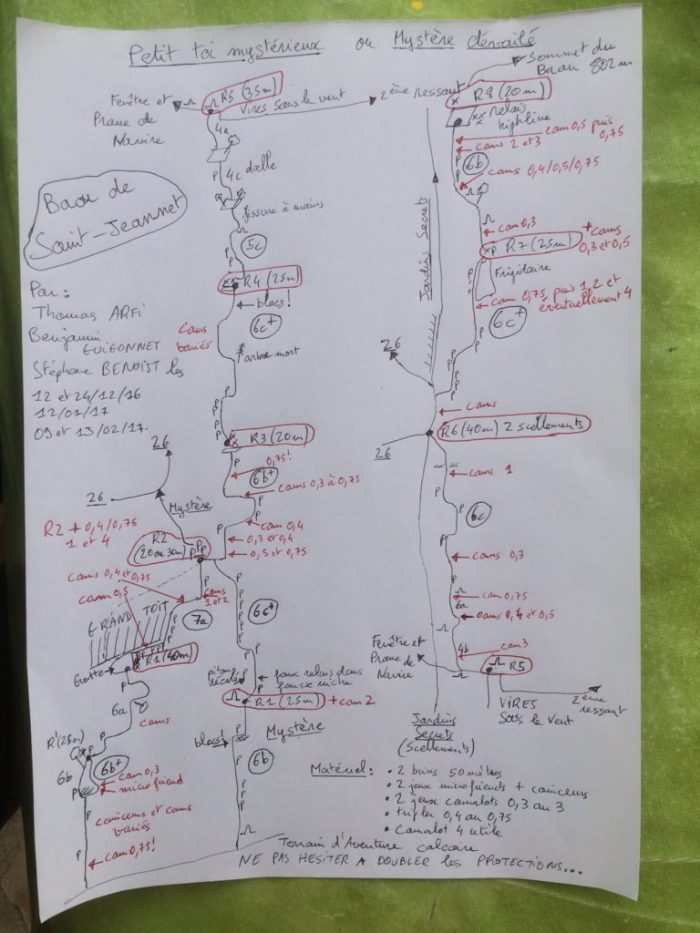 Petit toi mystérieux ou Mystère dévoilé
Sommet du
Baou 802m
Fenêtre et
Proue de
Navire
R5 (35m)
Vires sous le vent
2ème ressaut
R8 (20m)
relais
highline
cam 0,5 puis
0,75
cams 2 et 3
6b
cams 0,4/0,5/0,75
4a
4c dalle
fissure à mains
5c
cam 0,3
R7 (25m)
+ cams
0,3 et 0,5
Frigidaire
cam 0,75 puis 1,2 et
éventuellement 4
6c+
Jardins Secrets
Baou de
Saint-Jeannet
Par :
Thomas ARFI
Benjamin
GUIGONNET
Stéphane BENOIST les
12 et 24/12/16
12/01/17
09 et 13/02/17.
R4 (25m)
blocs!
6c+
Cams
variés
arbre mort
26
cams
R6 (40m) 2 scellements
26
R3 (20m)
0,75!
6b+
cams 0,3 à 0,75
cam 0,4
0,3 et 0,4
0,5 et 0,75
26
26
Mystère
R2 + 0,4/0,75
1 et 4
R2
(20 ou 30m)
cams 0,4 et 0,75
cam 0,5
cams
1 et 2
GRAND TOIT
7a
6c+
cams 1
6c
cam 0,3
cam 0,75
6a
cams 0,4 et 0,5
cam 3
4b
R5
Fenêtre et
Proue de
Navire
VIRES
Sous le Vent
2ème
ressaut
Grotte
R1 (40m)
6a
cams
piton
faux relais dans
fausse niche
R1 (25m) + cam 2
Mystère
blocs!
6b
R' (25m)
6b
6b+
cam 0,3
microfriend
camieurs et cams
variés
cam 0,75!
Jardins
Secrets
(Scellements)
Matériel :
• 2 brins 50 mètres
• 2 jeux microfriends +
• 2 jeux camelots 0,3 au 3
• tripler 0,4 au 0,75
• Camalot 4 utile
Terrain d'Aventure calcaire
NE PAS HESITER A DOUBLER les PROTECTIONS...